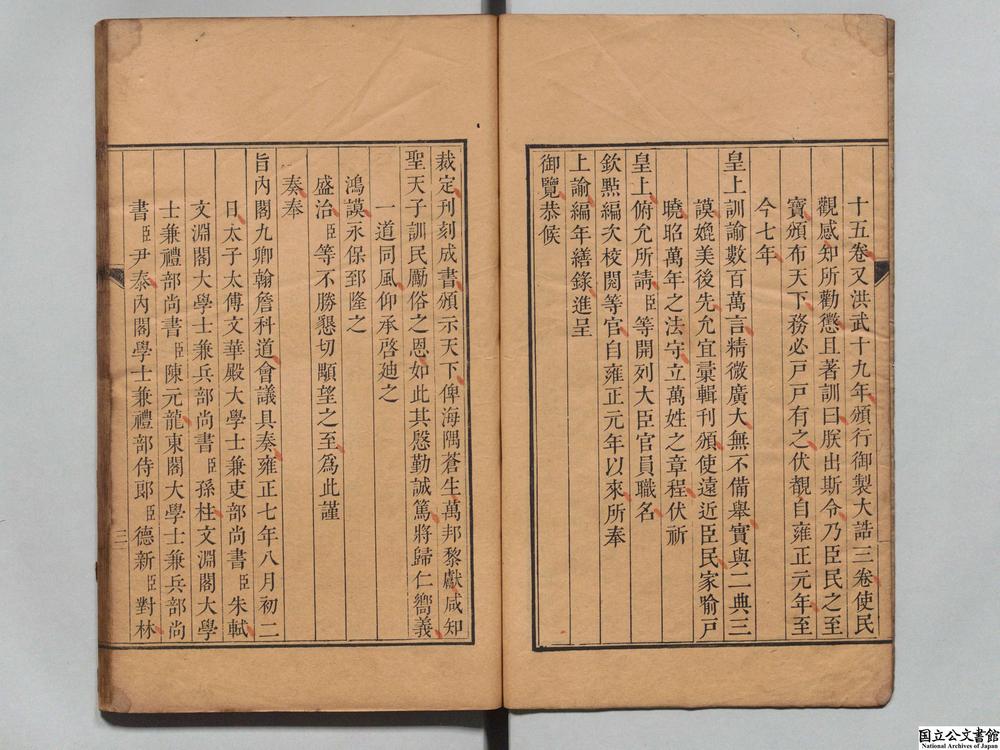 十五卷又洪武十九年頒行御製大誥三卷使民
觀感知所勸懲且著訓曰朕出斯令乃臣民之至
寶頒布天下務必戸戸有之伏覩自雍正元年至
今七年
皇上訓諭數百萬言精微廣大無不備舉實與二典三
謨媲美後先允宜彙輯刊頒使遠近臣民家喻戸
曉昭萬年之法守立萬姓之章程伏祈
皇上俯允所請臣等開列大臣官員職名
欽點編次校閱等官自雍正元年以來所奉
上諭編年繕錄進呈
御覽恭候
裁定刊刻成書頒示天下俾海隅蒼生萬邦黎獻咸知
聖天子訓民勵俗之恩如此其慇勤誠篤將歸仁嚮義
一道同風仰承啓廸之
鴻謨永保郅隆之
盛治臣等不勝懇切顒望之至爲此謹
奏奉
旨內閣九卿翰詹科道會議具奏雍正七年八月初二
日太子太傅文華殿大學士兼吏部尚書臣朱軾
文淵閣大學士兼兵部尚書臣孫柱文淵閣大學
士兼禮部尚書臣陳元龍東閣大學士兼兵部尚
書臣尹泰內閣學士兼禮部侍郎臣德新臣對林
三
国立公文書館
National Archives of Japan